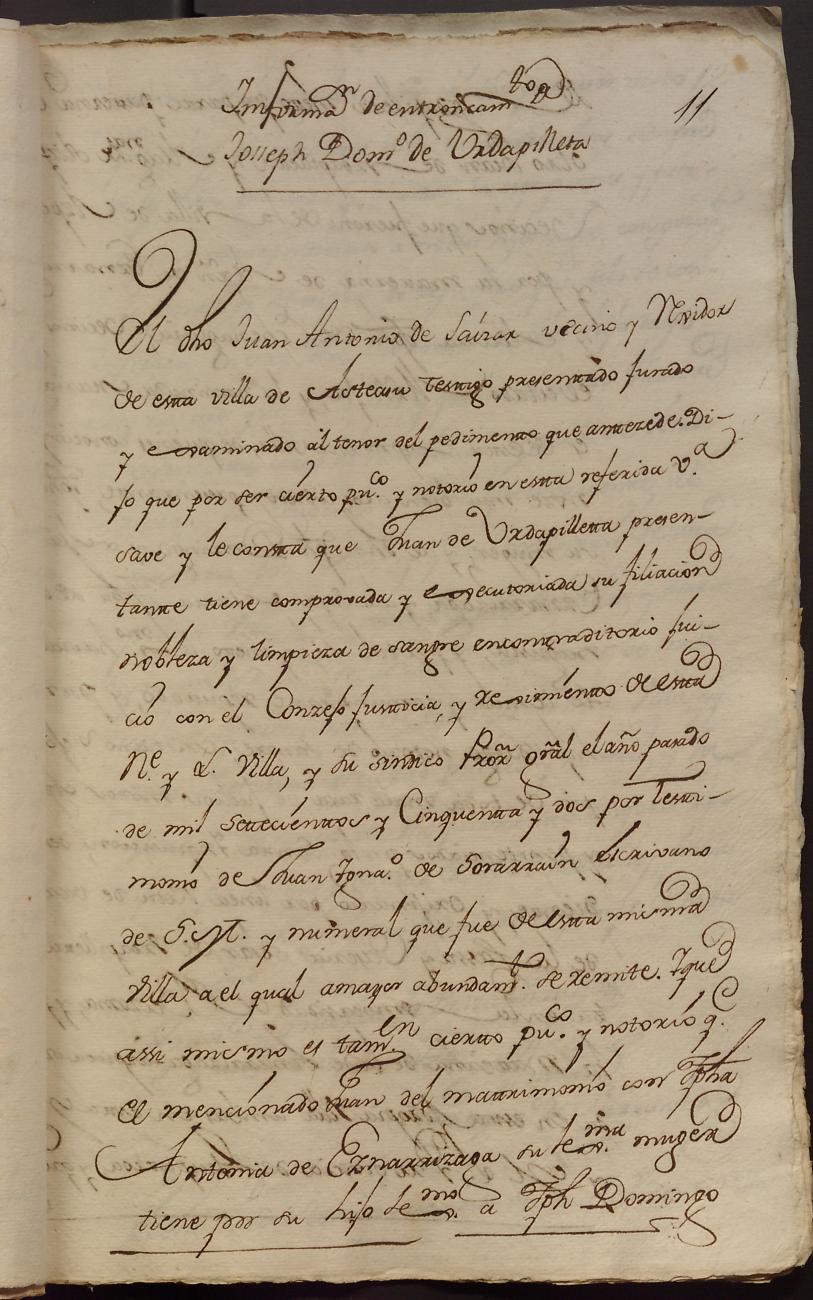 Informa.on de entroncam.to de
11
Joseph Dom.o de Urdapilleta
El dho Juan Antonio de Saizar vecino y Rexidor
de estta villa de Asteasu testtigo presenttado jurado
y examinado al tenor del pedimentto que anttezede. Di-
jo que por ser ciertto pu.co y notorio en estta referida V.a
save y le constta que Juan de Urdapilletta presen-
tantte tiene comprovada y executoriada su filiacion
nobleza y limpieza de sangre en conttraditorio jui-
cio con el Conzejo justticia, y reximientto de estta
N.e y L. Villa, y su sindico Pror gral el año pasado
de mil settecienttos y Cinquentta y dos por Testti-
monio de Juan Igna.o de Sorarrain escrivano
de S.M. y numeral que fue de estta misma
Villa a el qual a mayor abundam.to se remite. Y que
assi mismo es tamen ciertto pu.co y notorio q.e
el mencionado Juan del mattrimonio con Jpha
Antonia de Eznarrizaga su le.ma muger
tiene por su hijo le.mo a Jph Domingo